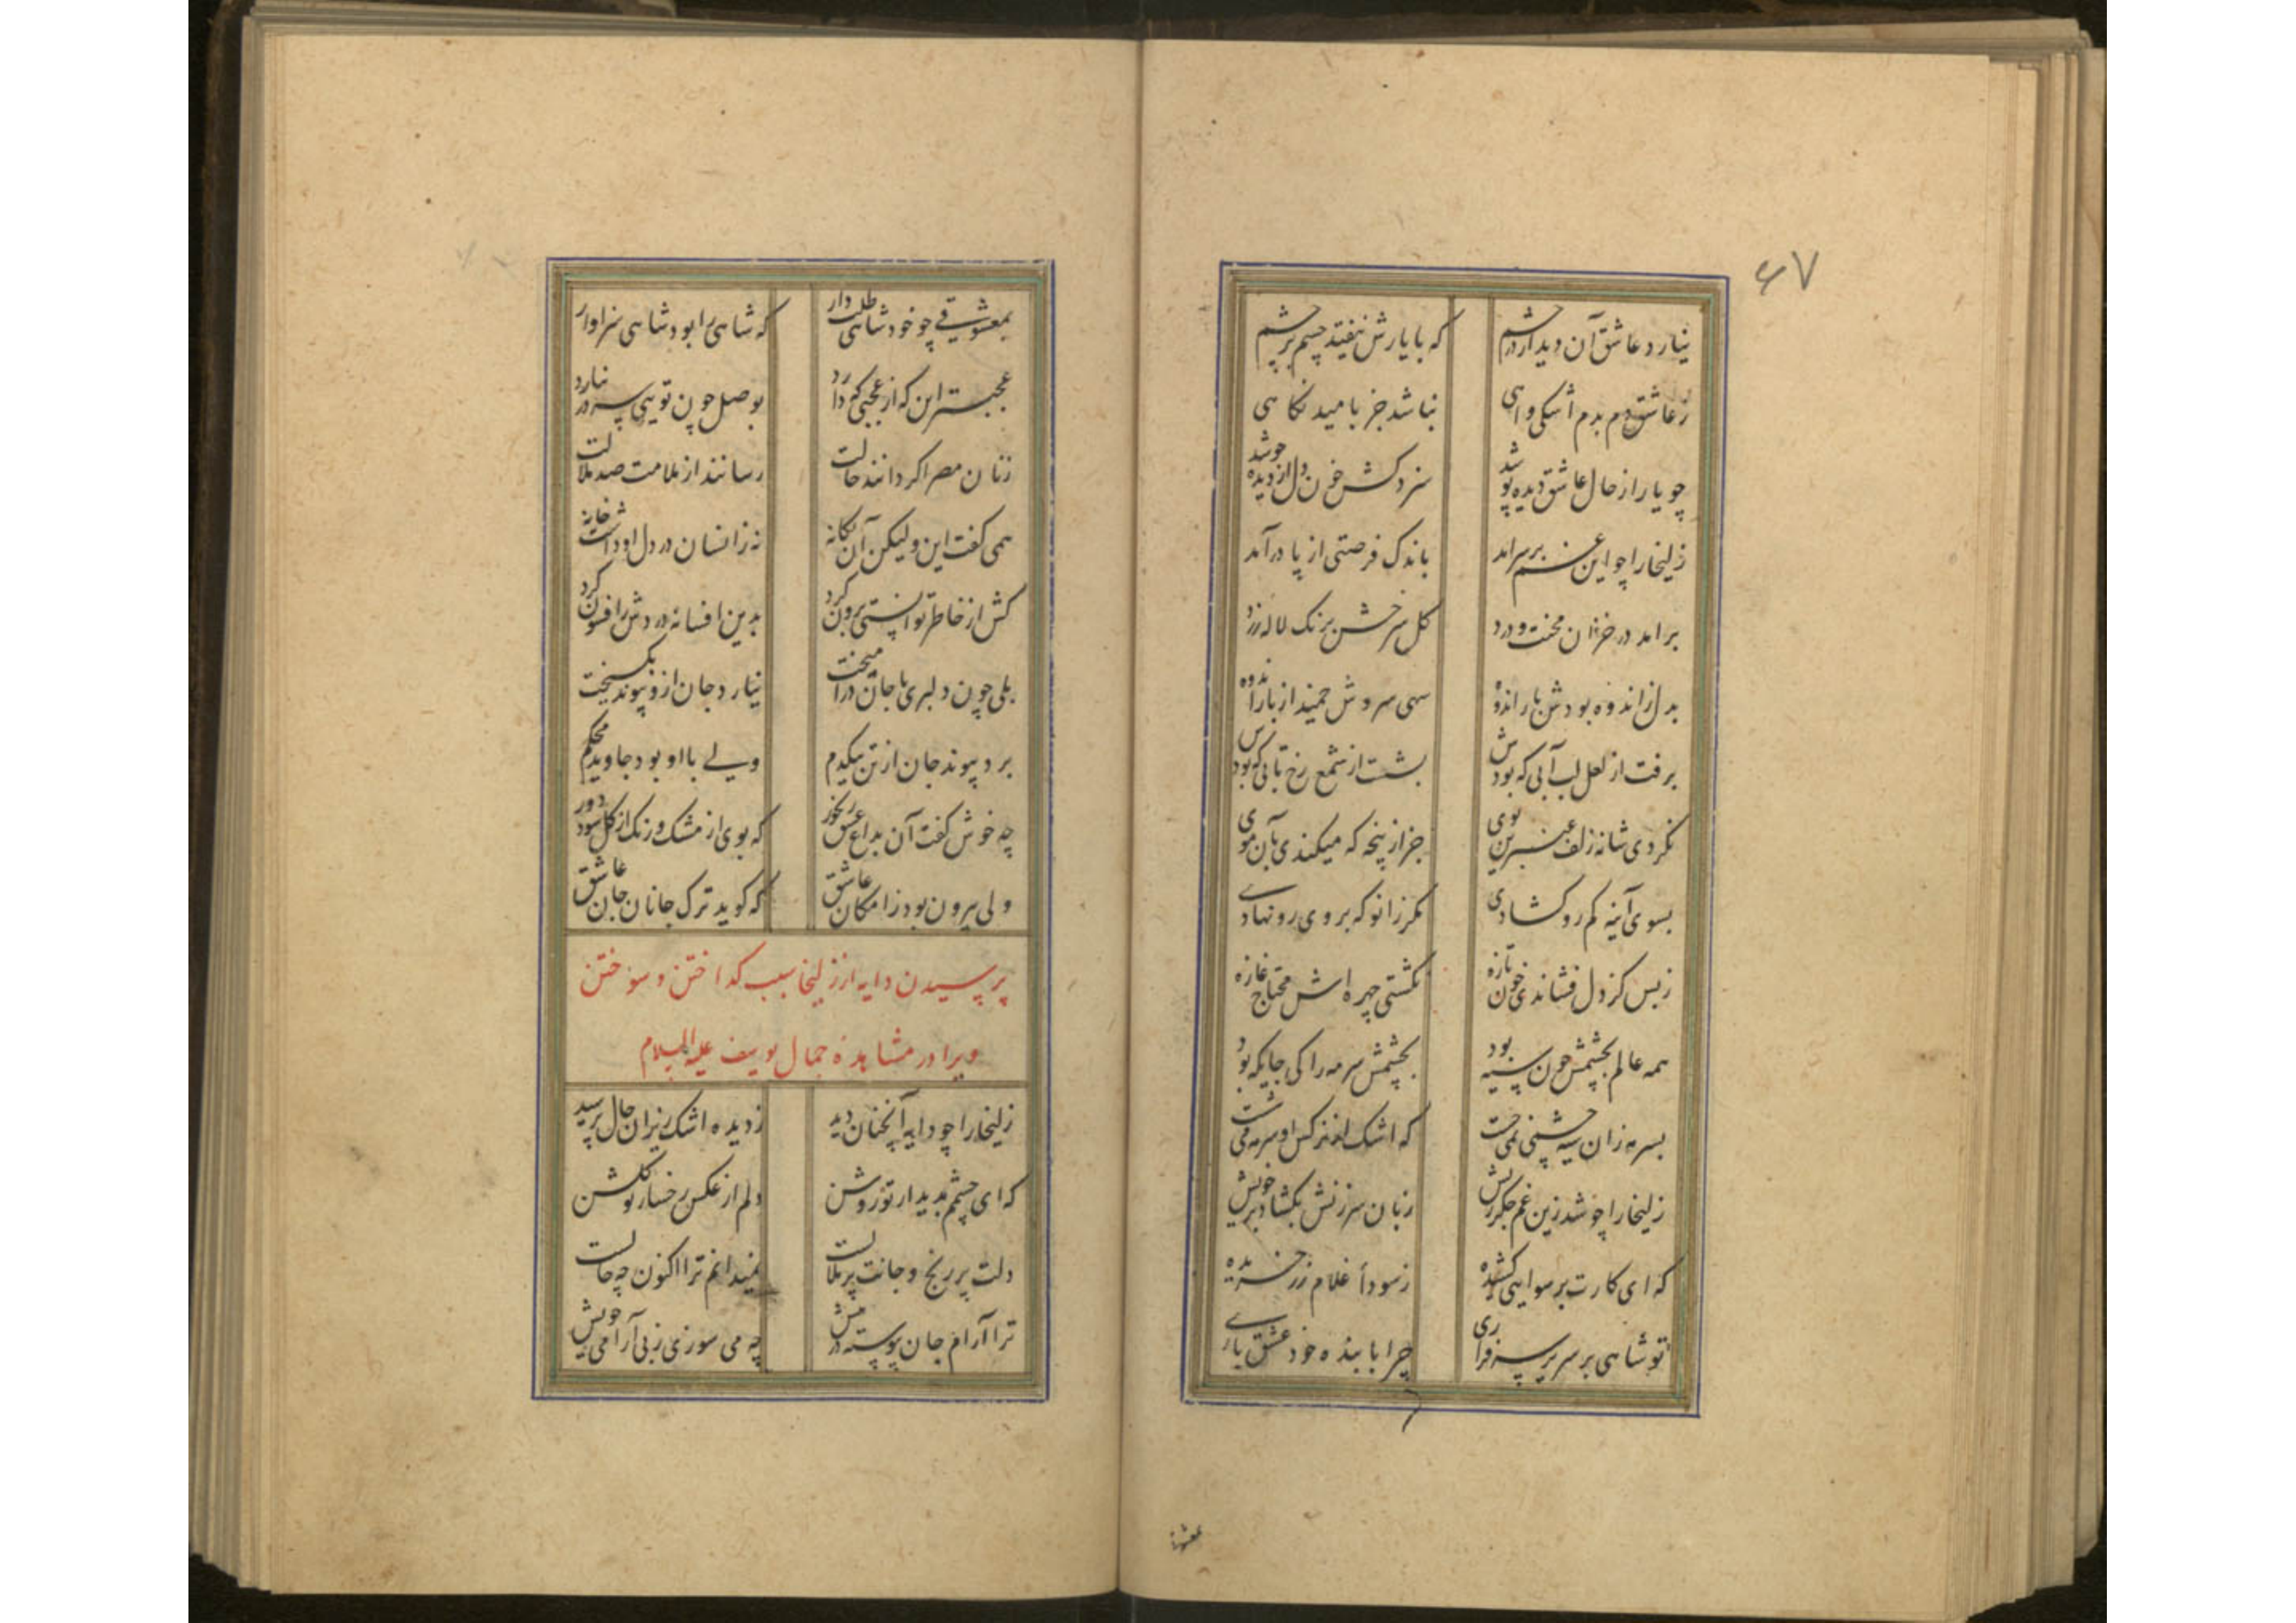 ۶۷
نیارد عاشق آن دیدار در چشم
که با یارش نیفتد چشم بر چشم
ز عاشق دم بدم اشکی و آهی
نباشد جز بامید نکاهی
چو یار از حال عاشق دیده پوشد
سزد کش خون دل از دیده جوشد
زلیخا را چو این غم بر سر امد
باندک فرصتی از پا در آمد
بر امد در خزان محنت و درد
کل سرخش برنک لاله زرد
بدل ز اندوه بودش بار اندوه
سهی سروش خمید از بار اندوه
برفت از لعل لب آبی که بودش
نشست از شمع رخ تابی که بودش
نکردی شانه زلف عنبرین بوی
جز از پنجه که میکندی بآن موی
بسوی آینه کم رو کشادی
مکر زانو که بر وی رو نهادی
ز بس کز دل فشاندی خون تازه
نکشتی چهره اش محتاج غازه
همه عالم بچشمش چون سیه بود
بچشمش سرمه را کی جایکه بود
بسرمه زان سیه چشمی نمی جست
که اشک از نرکس او سرمه می شست
زلیخا را چو شد زین غم جکر ریش
زبان سرزنش بکشاد بر خویش
که ای کارت برسوایی کشیده
ز سودا غلام زر خریده
تو شاهی بر سریر سرفرازی
چرا با بنده خود عشق بازی
بمعشوقی چو خود شاهی طلب دار
که شاهی را بود شاهی سزاوار
عجبتر این که از عجبی که دارد
بوصل چون تویی سر در نیارد
زنان مصر اکر دانند حالت
رسانند از ملامت صد ملالت
همی کفت این و لیکن آن یکانه
نه زانسان در دل او داشت خانه
کش از خاطر توانستی برون کرد
بدین افسانه دردش را فسون کرد
بلی چون دلبری با جان در آمیخت
نیارد جان ازو پیوند بکسیخت
برد پیوند جان از تن بیکدم
ولی با او بود جاوید محکم
چه خوش کفت آن بداغ عشق رنجور
که بوی از مشک و رنک از کل شود دور
ولی بیرون بود ز امکان عاشق
که کوید ترک جانان جان عاشق
پرسیدن دایه از زلیخا سبب کداختن و سوختن
ویرا در مشاهده جمال یوسف علیه السلام
زلیخا را چو دایه آنچنان دید
ز دیده اشک ریزان حال پرسید
که ای چشمم بدیدار تو روشن
دلم از عکس رخسار تو کلشن
دلت پر رنج و جانت پر ملالست
نمیدانم ترا اکنون چه حالست
ترا آرام جان پیوسته در پیش
چه می سوزی ز بی آرامی خویش